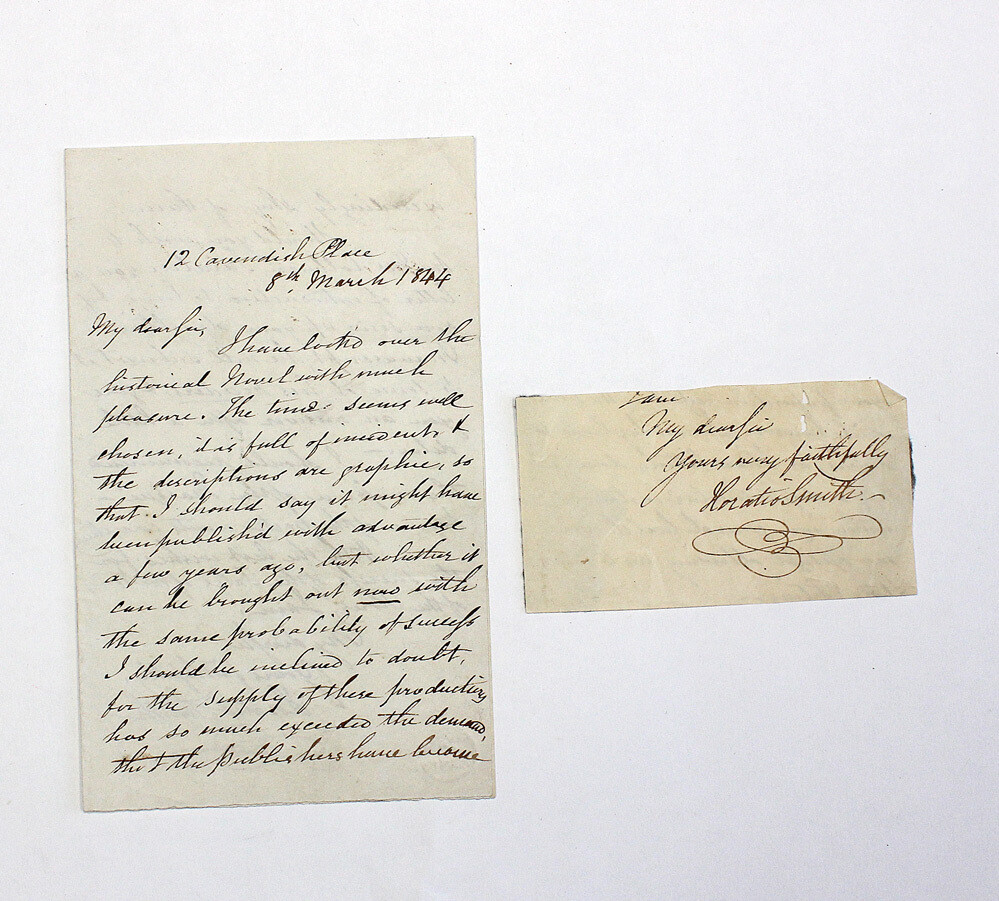 12 Cavendish Place
8th March 1844
My dear Sir,
I have look'd over the
historical Novel with much
pleasure. The time seems well
chosen, it is full of incident, &
the descriptions are graphic, so
that I should say it might have
been publish'd with advantage
a few years ago, but whether it
can be brought out now with
the same probability of success
I should be inclined to doubt,
for the supply of these productions
has so much exceeded the demand,
that the publishers have become
I am
My dear Sir
Yours very faithfully
Horatio Smith